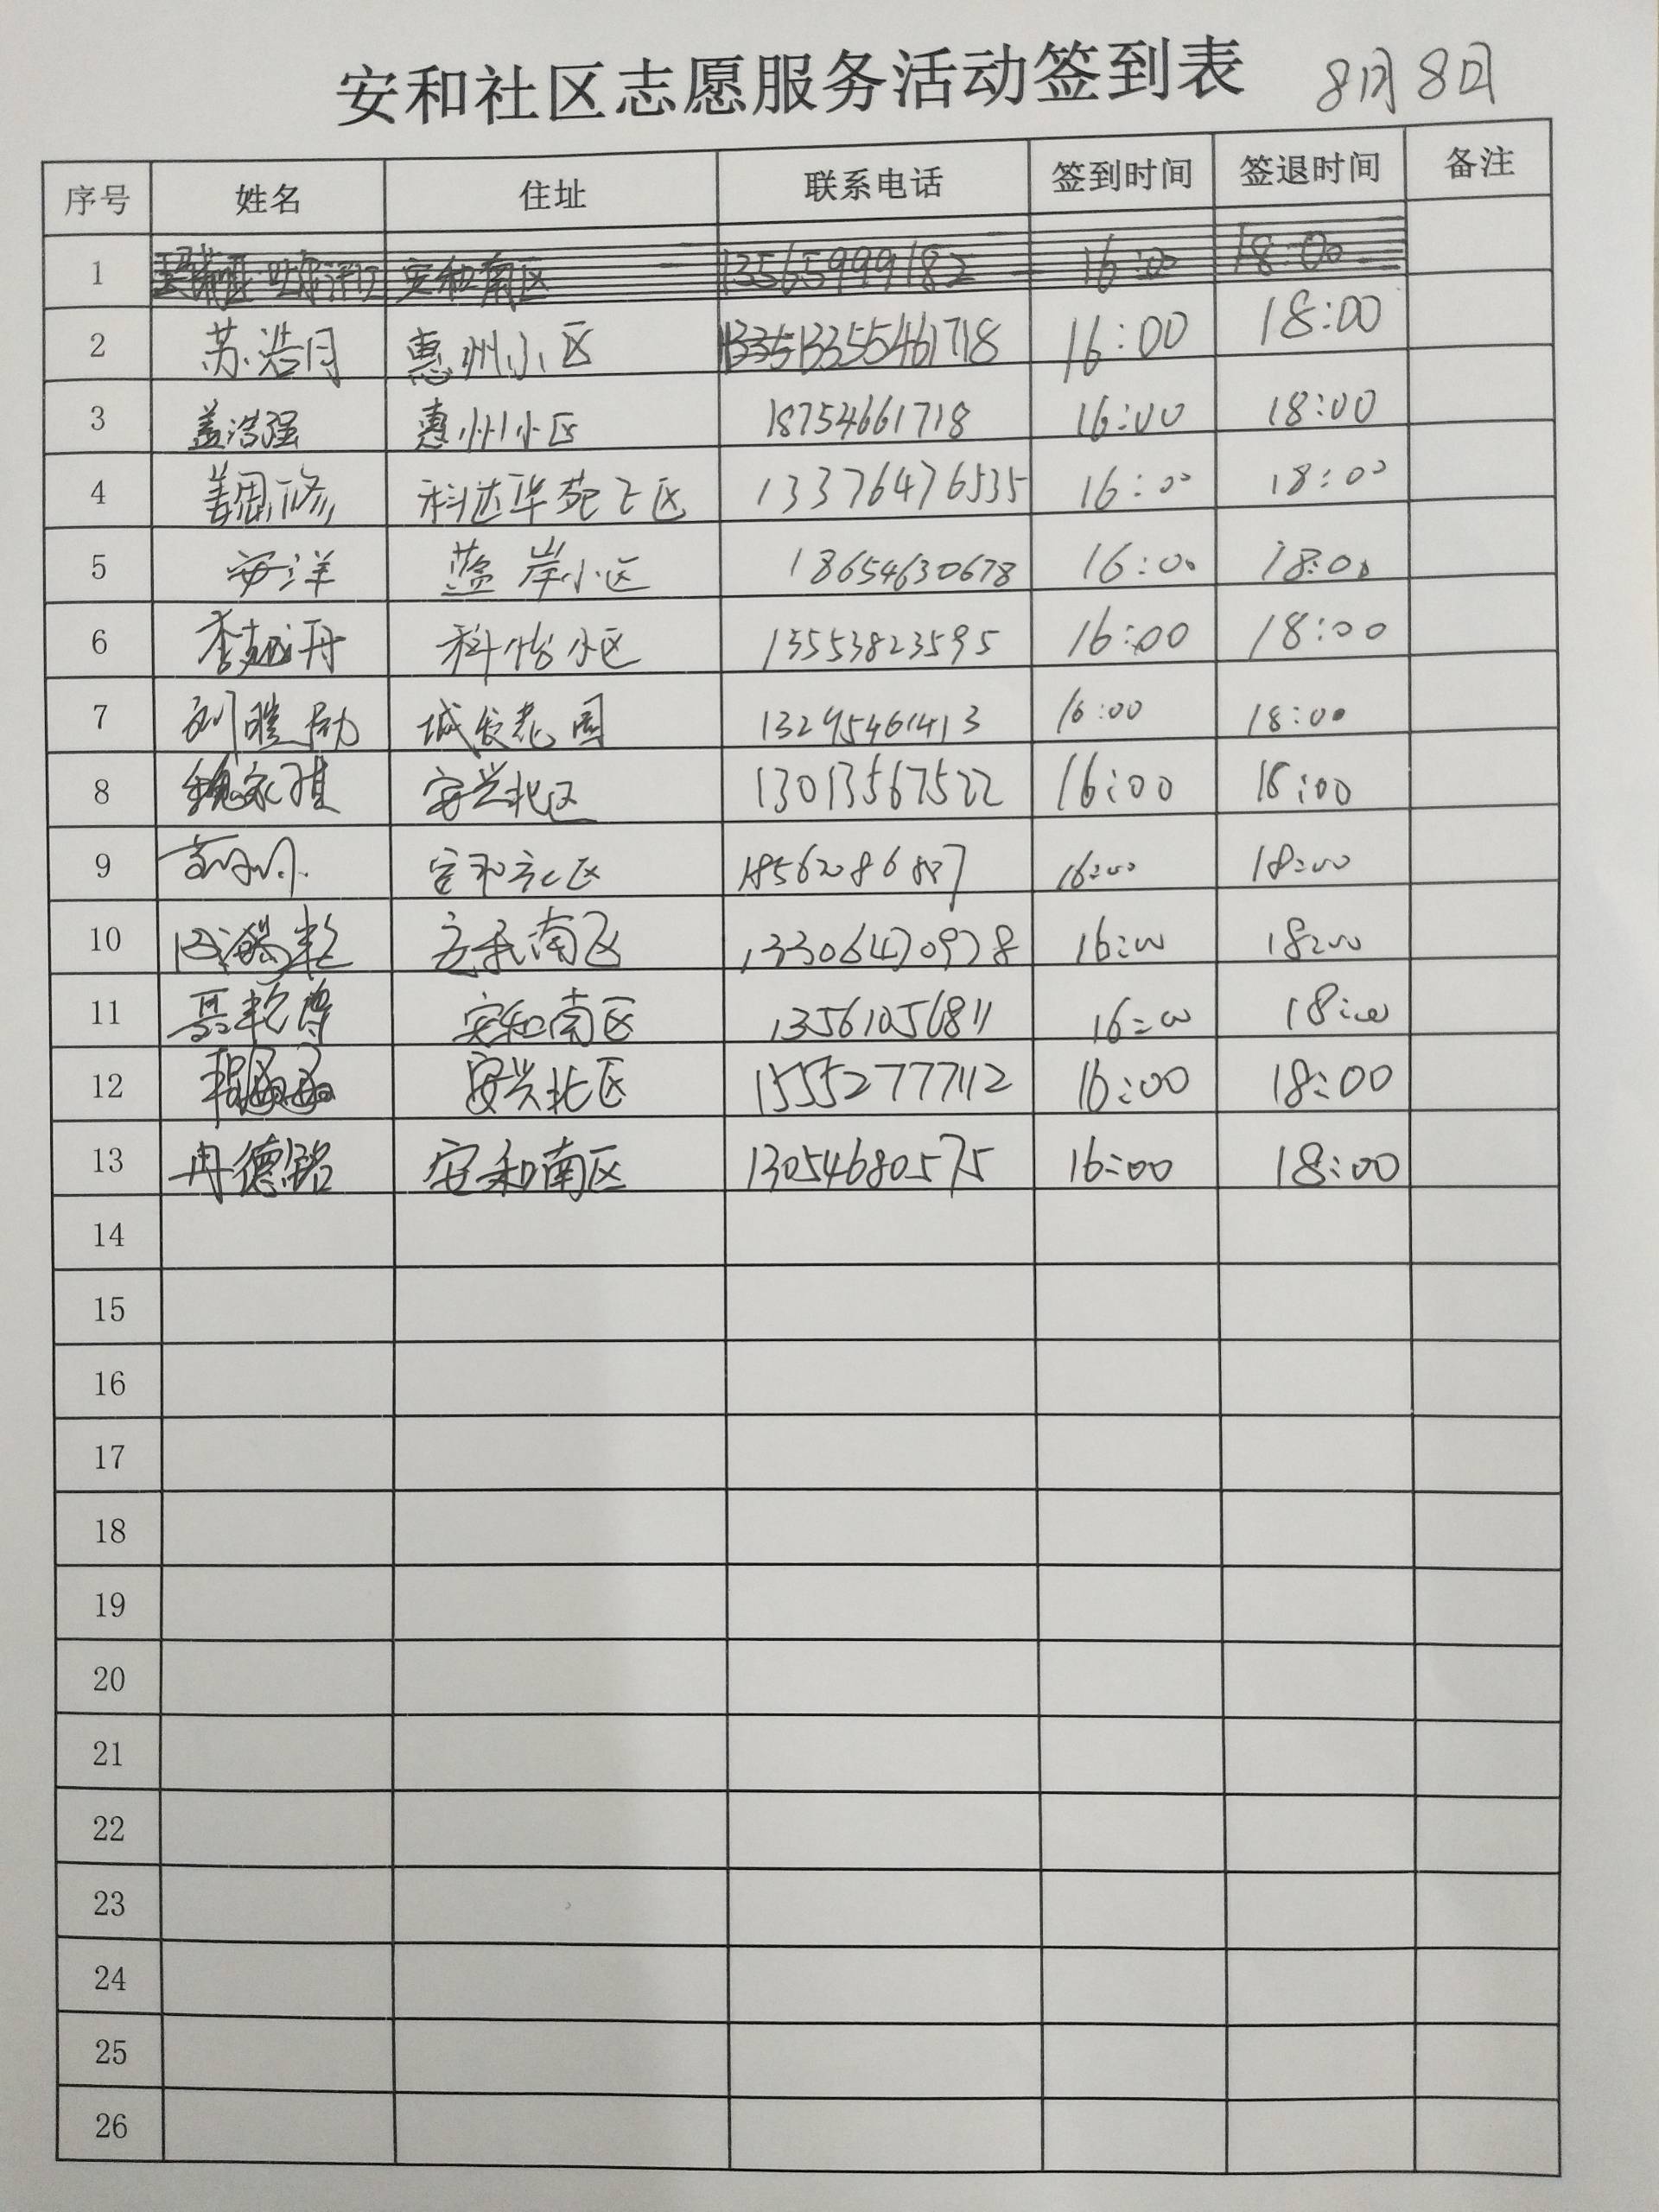 安和社区志愿服务活动签到表 8月8日
序号 姓名 住址 联系电话 签到时间 签退时间 备注
1 安和南区 13565999182 16:00 18:00
2 苏浩月 惠州小区 13355461718 16:00 18:00
3 盖浩强 惠州小区 18754661718 16:00 18:00
4 科达华苑2区 13376476535 16:00 18:00
5 安洋 蓝岸小区 18654630678 16:00 18:00
6 李越丹 科怡小区 15553823595 16:00 18:00
7 城发花园 13295461413 16:00 18:00
8 魏家琪 安兴北区 13013567522 16:00 18:00
9 安和社区 16:00 18:00
10 安和南区 13306470978 16:00 18:00
11 聂乾尊 安和南区 13561056811 16:00 18:00
12 安兴北区 15552777112 16:00 18:00
13 冉德铭 安和南区 13054680575 16:00 18:00
14
15
16
17
18
19
20
21
22
23
24
25
26